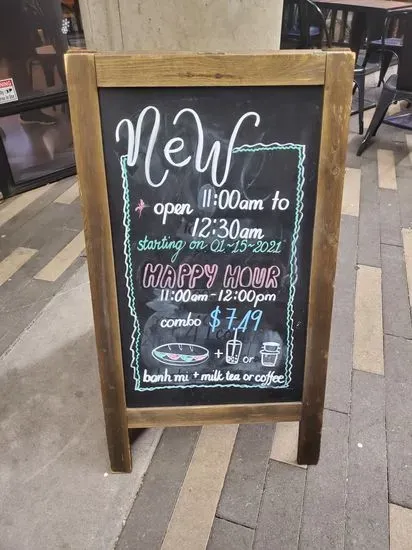 New
open 11:00am to
12:30am
starting on 01~15~2021
HAPPY HOUR
11:00am-12:00pm
combo $7,49
+ or
banh mi + milk tea or coffee